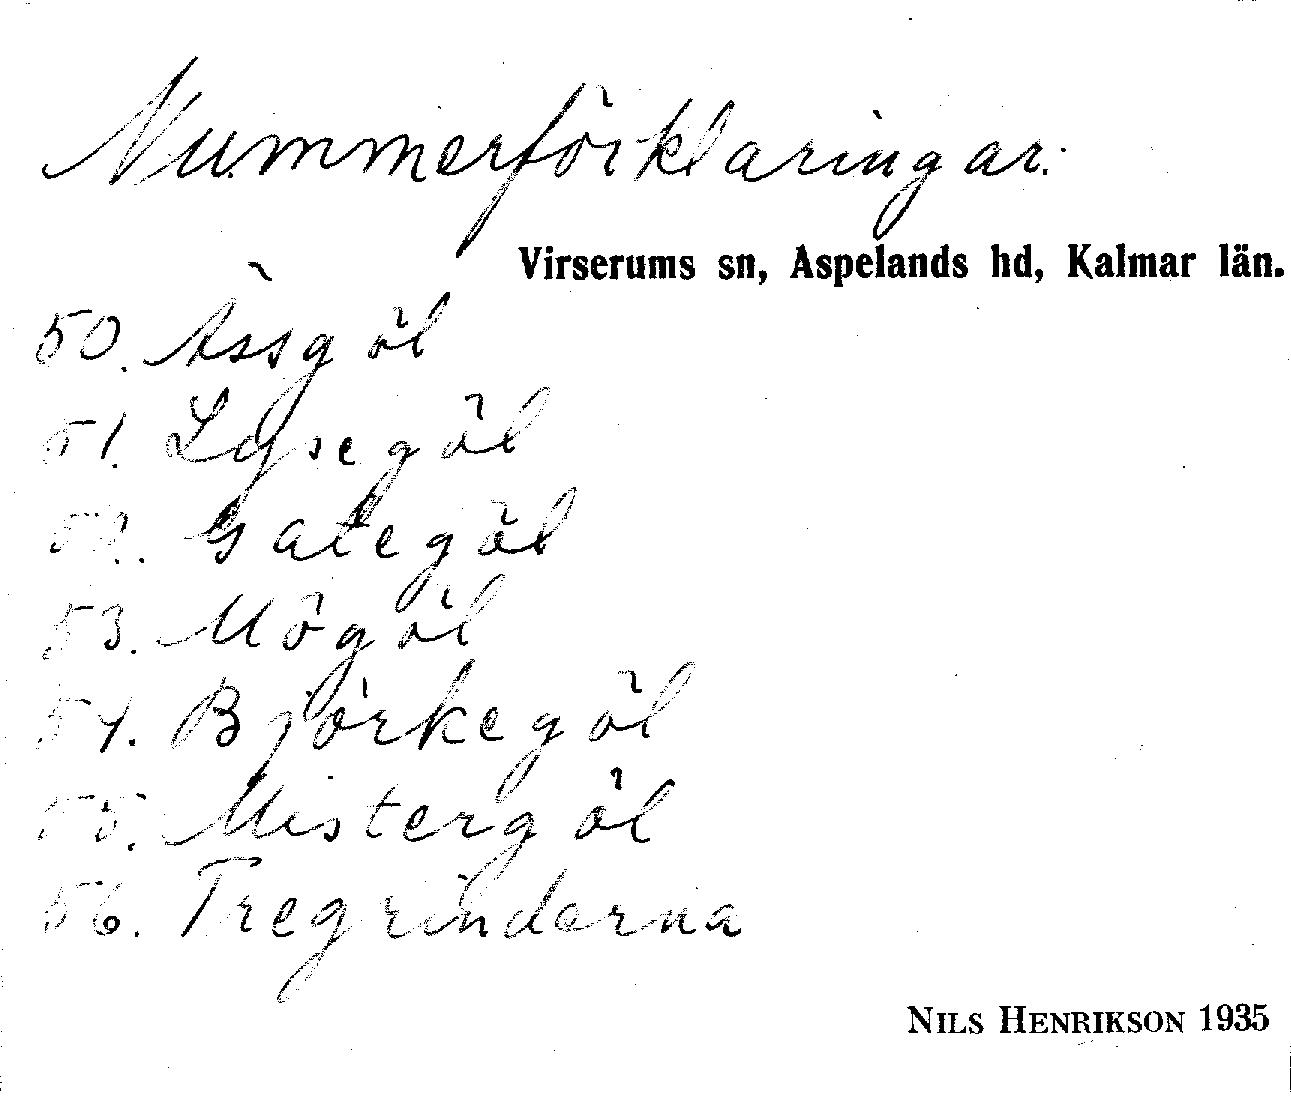 Nummerförklaringar.
Virserums sn, Aspelands hd, Kalmar län.
50. Åssgöl
51. Lysegöl
52. Gategöl
53. Mögöl
54. Björkegöl
55. Mistergöl
56. Tregrinderna
NILS HENRIKSON 1935